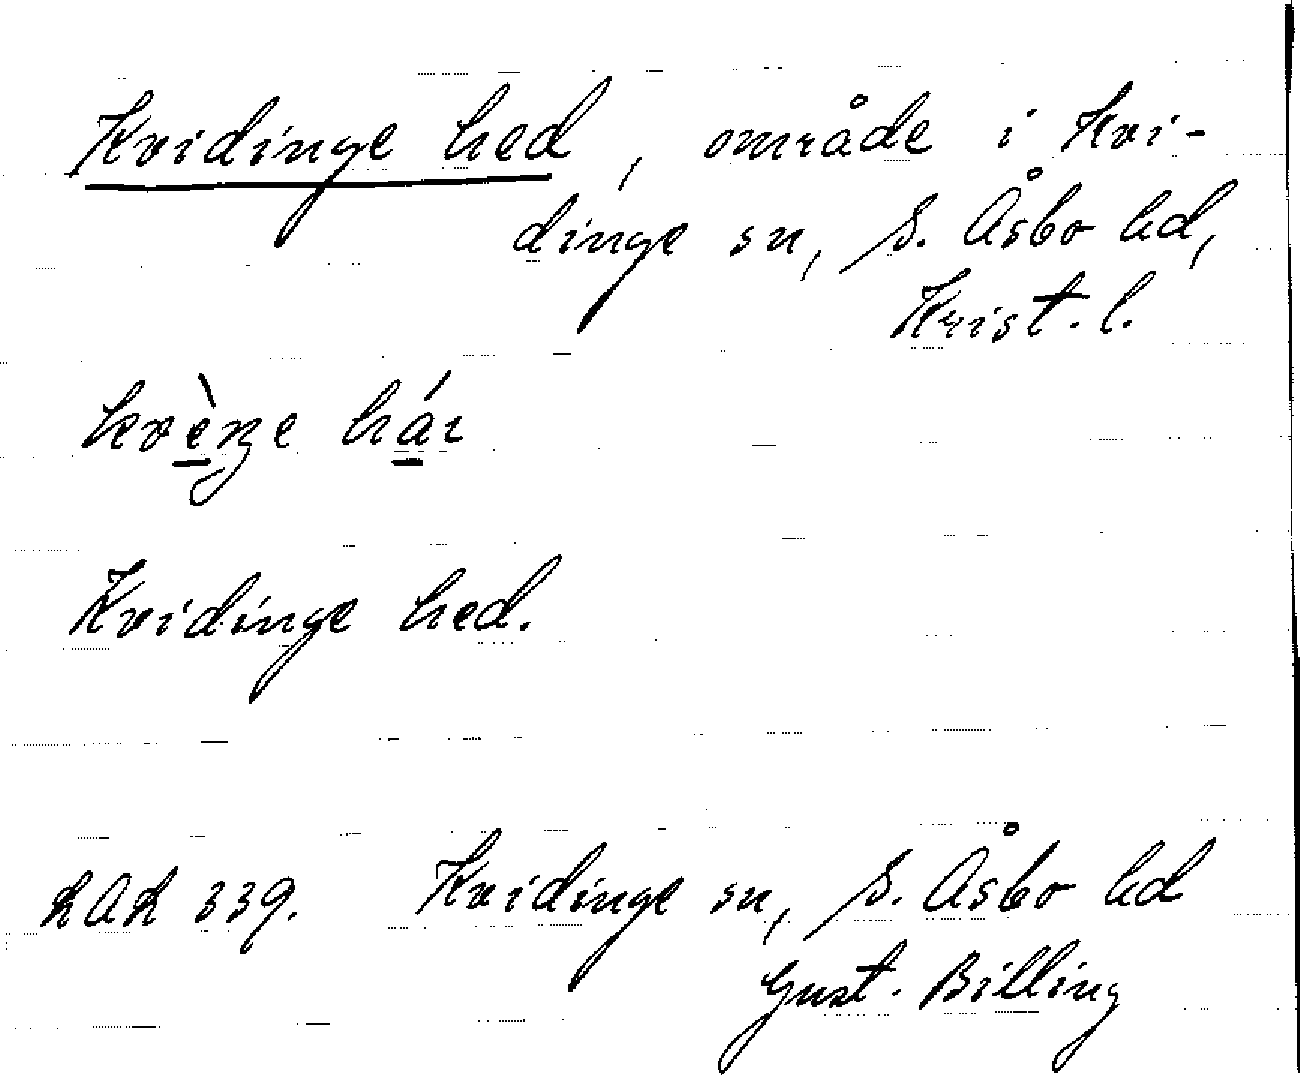 Kvidinge hed, område i Kvi-
dinge sn, S. Åsbo hd,
Krist. l.
kvèŋe hár
Kvidinge hed.
LAL 339. Kvidinge sn, S. Åsbo hd
Gust. Billing